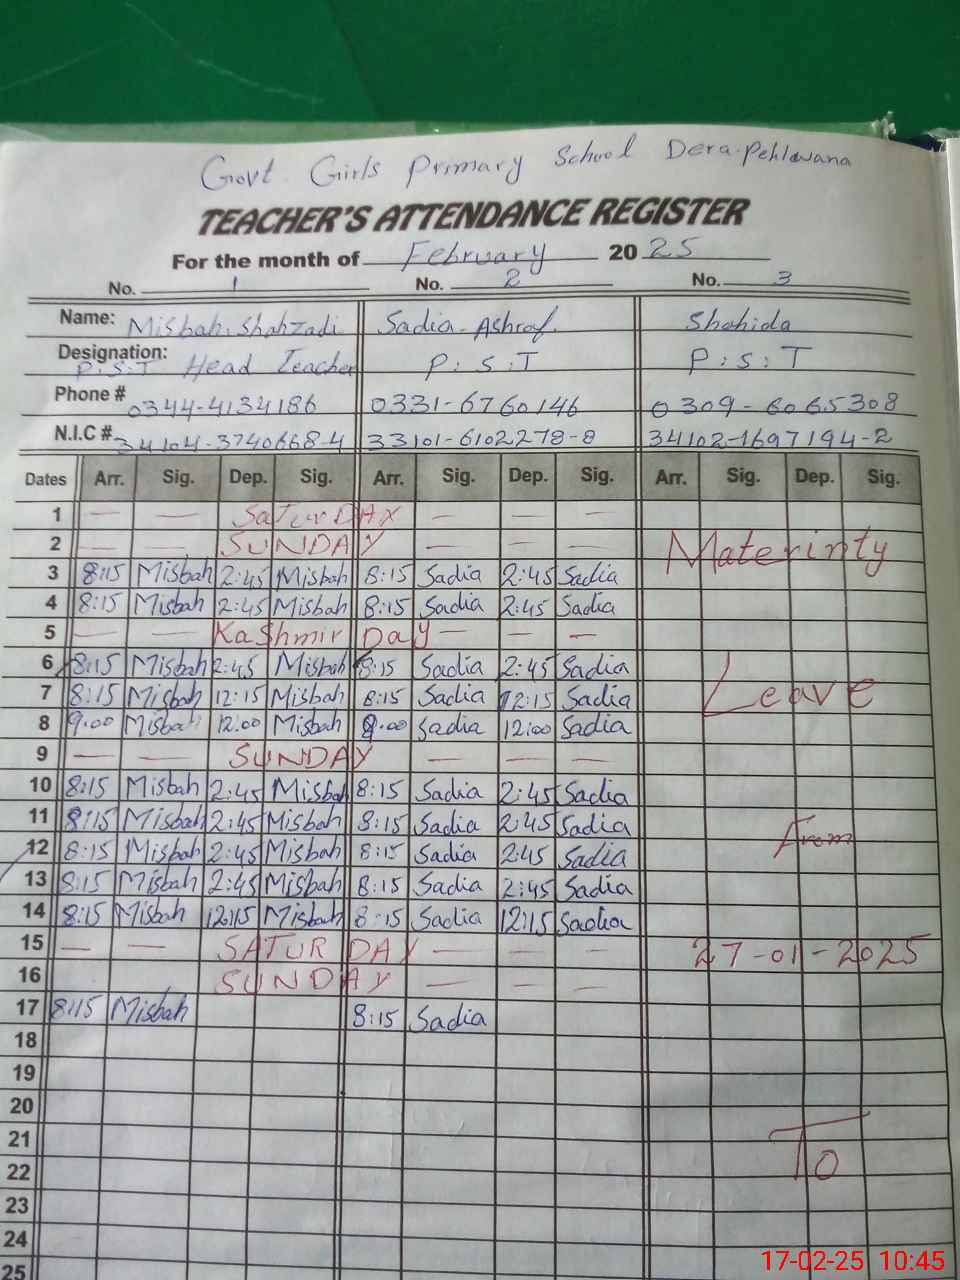 Govt. Girls Primary School Dera.Pehlawana
TEACHER'S ATTENDANCE REGISTER
For the month of February 2025
No. 1 No. 2 No. 3
Name: Misbah.Shahzadi Sadia-Ashraf. Shahida
Designation: P:S:T Head Teacher P:S:T P:S:T
Phone # 0344-4134186 0331-6760146 0309-6065308
N.I.C #. 34104-3740668-4 33101-6102278-8 34102-1697194-2
Dates Arr. Sig. Dep. Sig. Arr. Sig. Dep. Sig. Arr. Sig. Dep. Sig.
1 — — SaTurDAY — — —
2 — — SUNDAY — — — Materinty
3 8:15 Misbah 2:45 Misbah 8:15 Sadia 2:45 Sadia
4 8:15 Misbah 2:45 Misbah 8:15 Sadia 2:45 Sadia
5 — — KaShmir Day — — —
6 8:15 Misbah 2:45 Misbah 8:15 Sadia 2:45 Sadia
7 8:15 Misbah 12:15 Misbah 8:15 Sadia 12:15 Sadia Leave
8 9.00 Misbah 12.00 Misbah 9.00 Sadia 12:00 Sadia
9 — — SUNDAY — — —
10 8:15 Misbah 2:45 Misbah 8:15 Sadia 2:45 Sadia
11 8:15 Misbah 2:45 Misbah 8:15 Sadia 2:45 Sadia
12 8:15 Misbah 2:45 Misbah 8:15 Sadia 2:45 Sadia From
13 8:15 Misbah 2:45 Misbah 8:15 Sadia 2:45 Sadia
14 8:15 Misbah 12:15 Misbah 8:15 Sadia 12:15 Sadia
15 — — SATURDAY — — — 27-01-2025
16 SUNDAY — — —
17 8:15 Misbah 8:15 Sadia
18
19
20
21
22 To
23
24
25
17-02-25 10:45